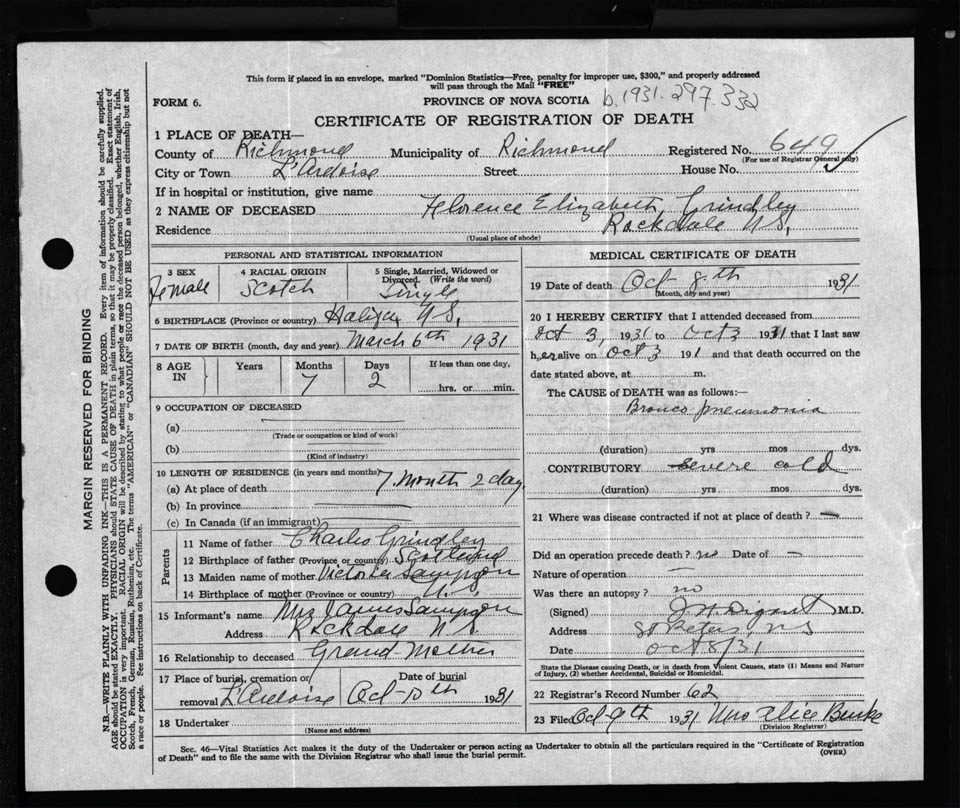 This form if placed in an envelope, marked "Dominion Statistics—Free, penalty for improper use, $300," and properly addressed
will pass through the Mail "FREE"
FORM 6.
PROVINCE OF NOVA SCOTIA b.1931.297.332
CERTIFICATE OF REGISTRATION OF DEATH
1 PLACE OF DEATH—
County of Richmond Municipality of Richmond Registered No. 649
(For use of Registrar General only)
City or Town L'Ardoise Street House No.
If in hospital or institution, give name
2 NAME OF DECEASED Florence Elizabeth Grindley
Residence Rockdale N.S.
(Usual place of abode)
PERSONAL AND STATISTICAL INFORMATION
3 SEX 4 RACIAL ORIGIN 5 Single, Married, Widowed or
Divorced. (Write the word)
Female Scotch Single
6 BIRTHPLACE (Province or country) Halifax N.S.
7 DATE OF BIRTH (month, day and year) March 6th 1931
8 AGE
IN
Years Months Days If less than one day,
7 2 hrs. or min.
9 OCCUPATION OF DECEASED
(a)
(Trade or occupation or kind of work)
(b)
(Kind of industry)
10 LENGTH OF RESIDENCE (in years and months)
(a) At place of death 7 month 2 day
(b) In province
(c) In Canada (if an immigrant)
Parents
11 Name of father Charles Grindley
12 Birthplace of father (Province or country) Scotland
13 Maiden name of mother Victoria Sampson
14 Birthplace of mother (Province or country) N.S.
15 Informant's name Mrs James Sampson
Address Rockdale N.S.
16 Relationship to deceased Grand Mother
17 Place of burial, cremation or Date of burial
removal L'Ardoise Oct 10th 1931
18 Undertaker
(Name and address)
MEDICAL CERTIFICATE OF DEATH
19 Date of death Oct 8th 1931
(Month, day and year)
20 I HEREBY CERTIFY that I attended deceased from
Oct 3, 1931 to Oct 3 1931 that I last saw
her alive on Oct 3 191 and that death occurred on the
date stated above, at m.
The CAUSE OF DEATH was as follows:—
Bronco pneumonia
(duration) yrs mos dys.
CONTRIBUTORY severe cold
(duration) yrs. mos dys.
21 Where was disease contracted if not at place of death? —
Did an operation precede death? no Date of —
Nature of operation —
Was there an autopsy? no
(Signed) M.D.
Address St Peters, N.S
Date Oct 8/31
State the Disease causing Death, or in death from Violent Causes, state (1) Means and Nature
of Injury, (2) whether Accidental, Suicidal or Homicidal.
22 Registrar's Record Number 62
23 Filed Oct 9th 1931 Mrs Alice Burke
(Division Registrar)
Sec. 46—Vital Statistics Act makes it the duty of the Undertaker or person acting as Undertaker to obtain all the particulars required in the "Certificate of Registration
of Death" and to file the same with the Division Registrar who shall issue the burial permit.
(OVER)
MARGIN RESERVED FOR BINDING
N.B.—WRITE PLAINLY WITH UNFADING INK—THIS IS A PERMANENT RECORD. Every item of information should be carefully supplied.
AGE should be stated EXACTLY. PHYSICIANS should STATE CAUSE OF DEATH in plain terms, so that it may be properly classified. Exact statement of
OCCUPATION is very important. RACIAL ORIGIN will be described by stating to what people or race the deceased person belonged, whether English, Irish,
Scotch, French, German, Russian, Ruthenian, etc. The terms "AMERICAN" or "CANADIAN" SHOULD NOT BE USED as they express citizenship but not
a race or people. See instructions on back of Certificate.